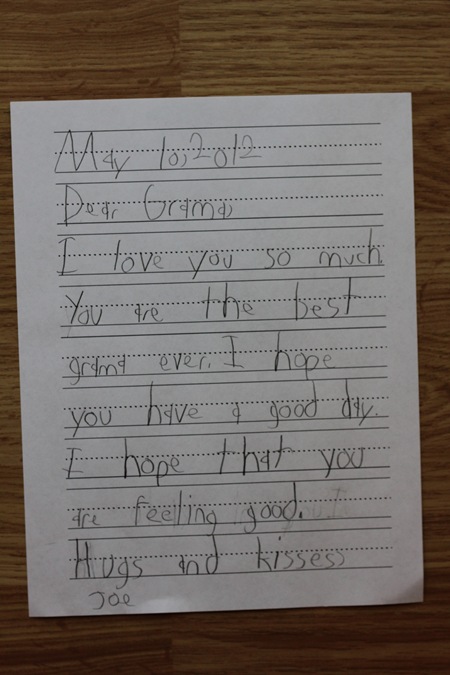 May 10, 2012
Dear Grama,
I love you so much.
You are the best
grama ever. I hope
you have a good day.
I hope that you
are feeling good.
Hugs and kisses,
Joe